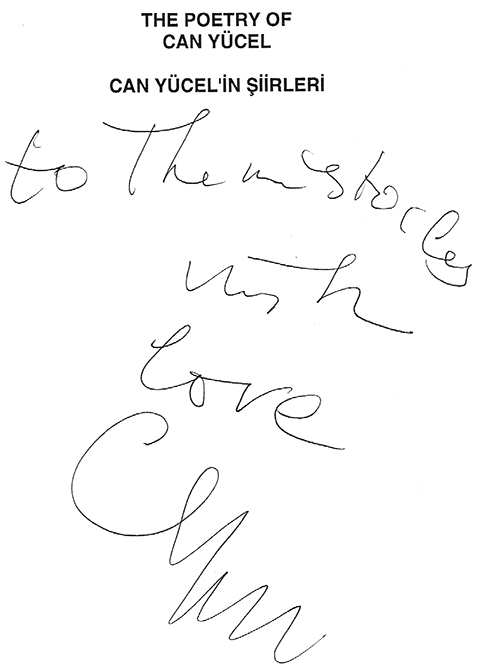 THE POETRY OF
CAN YÜCEL
CAN YÜCEL'İN ŞİİRLERİ
to Themistocles
with
love
Can